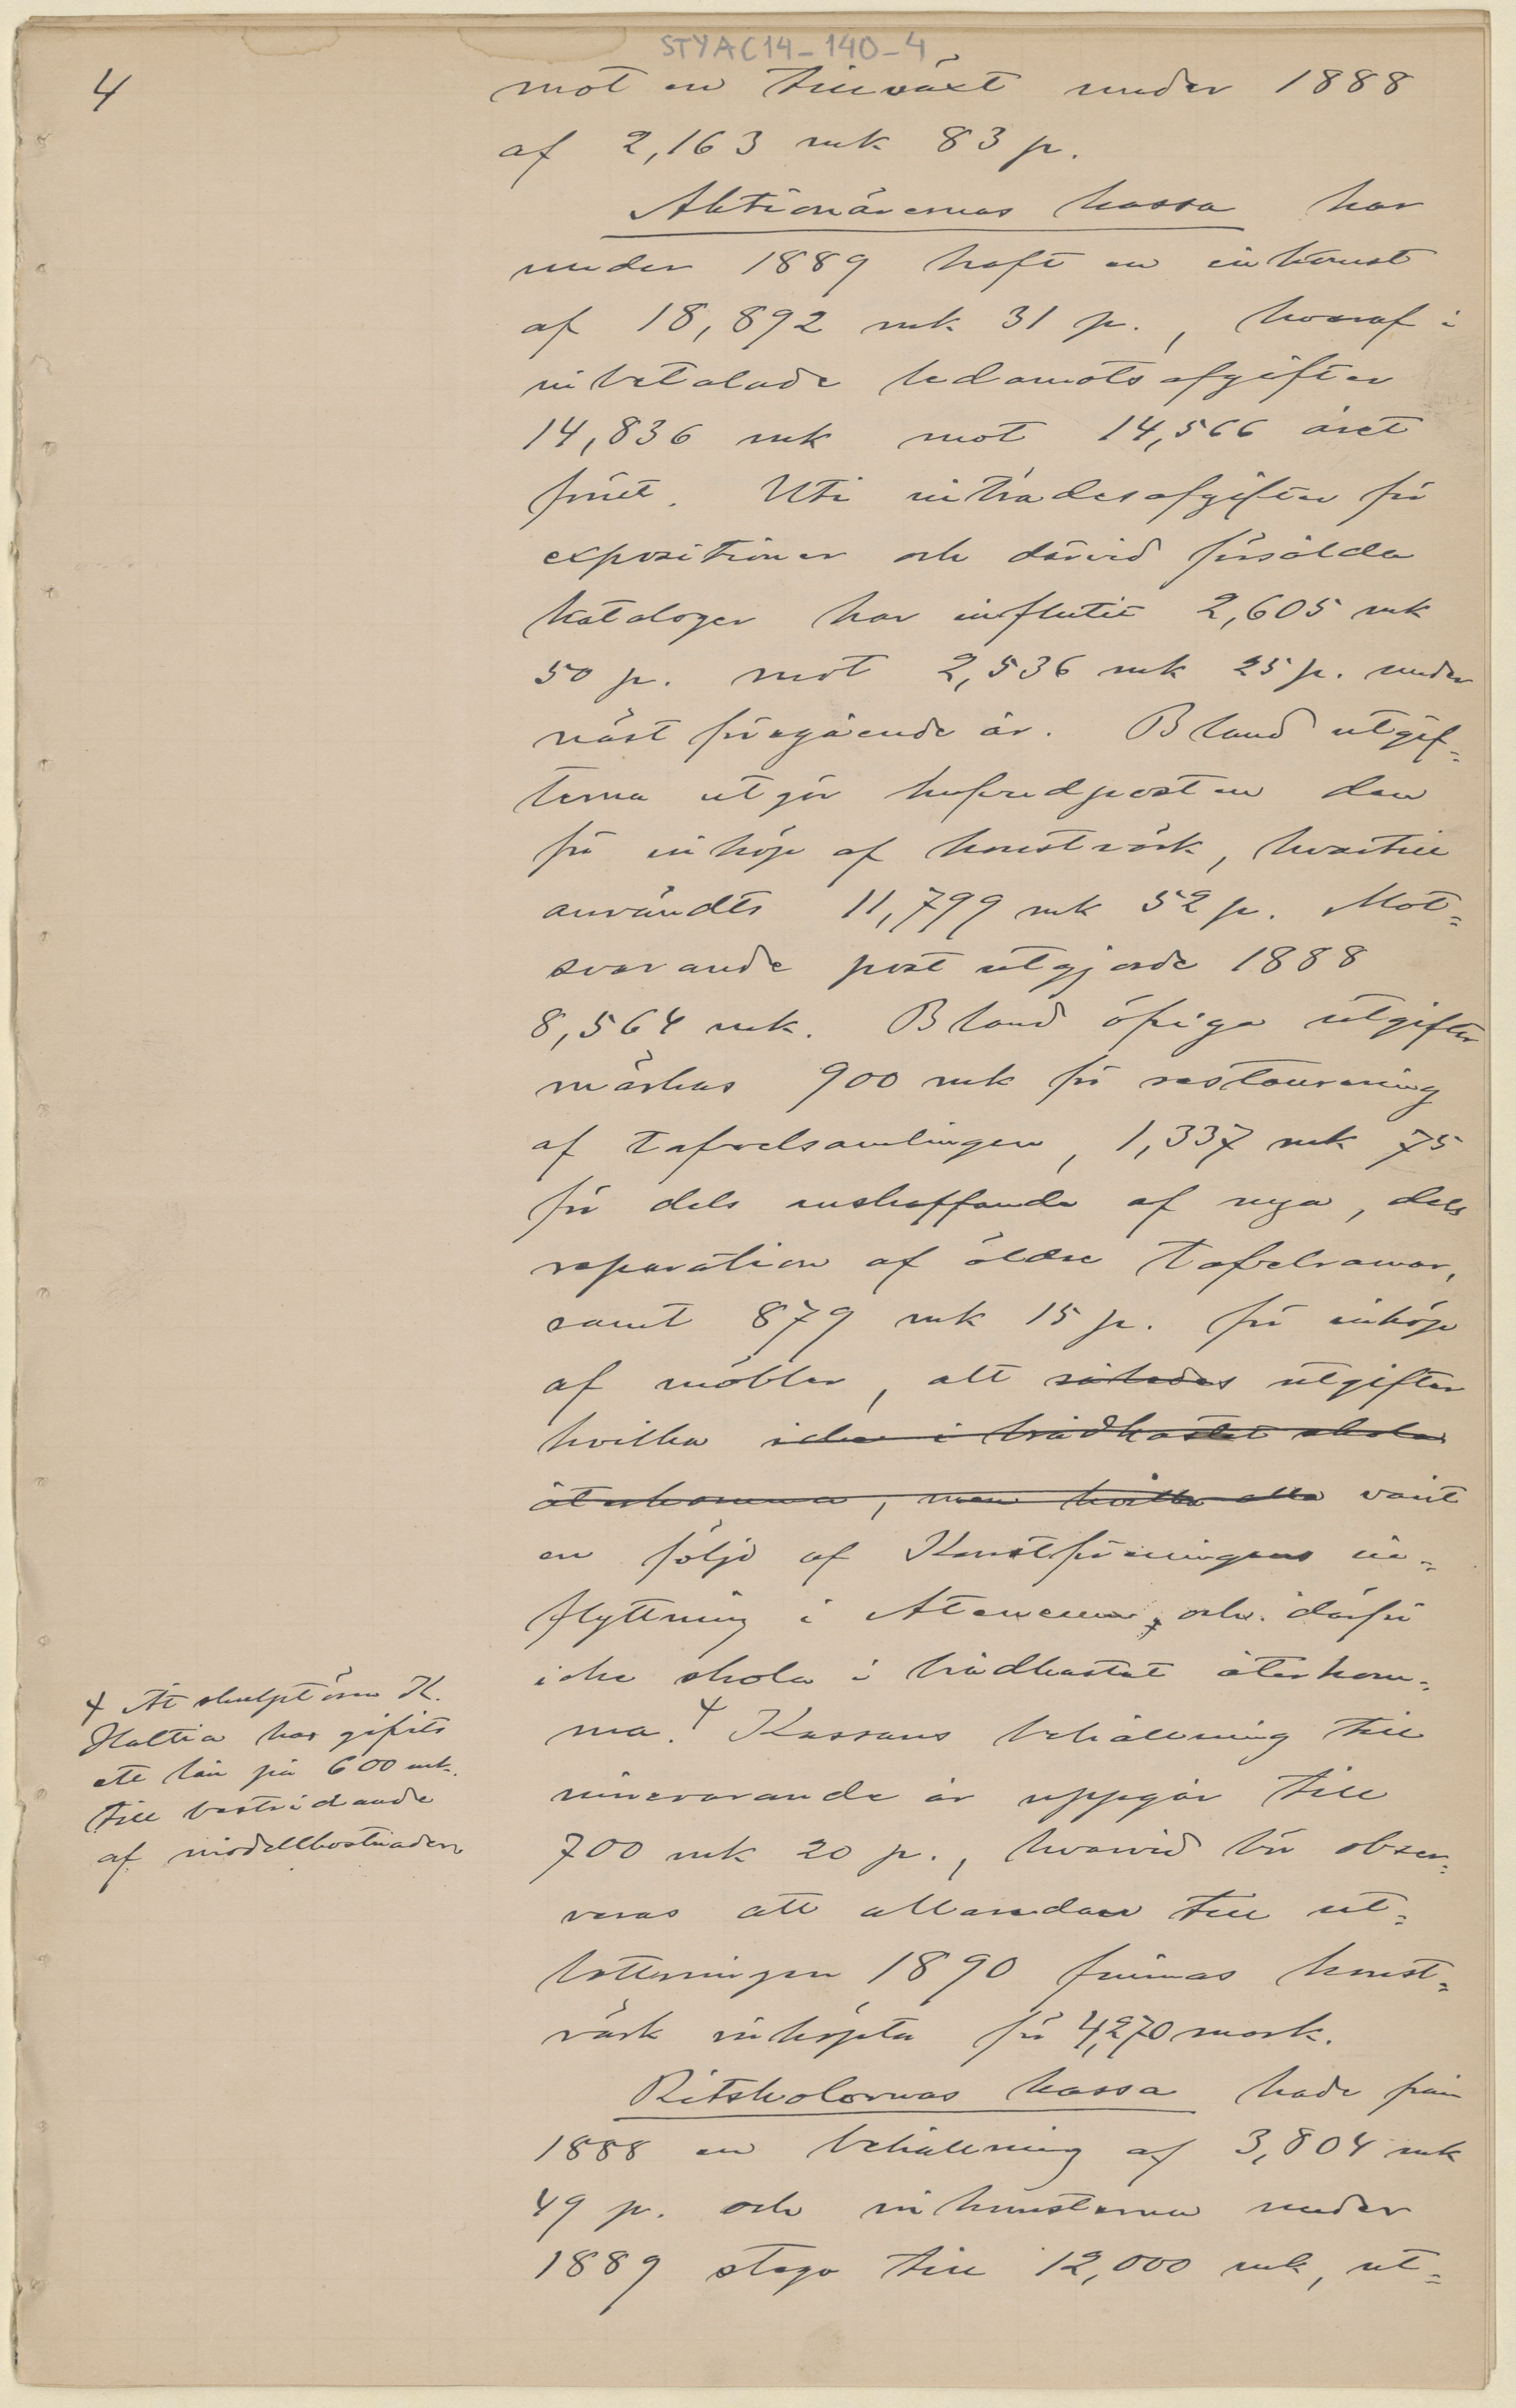 STYAC14-140-4
4
mot en tillväxt under 1888
af 2,163 mk 83 p.
Aktionärernas kassa har
under 1889 haft en inkomst
af 18,892 mk 31 p., hvaraf i
inbetalade ledamotsafgifter
14,836 mk mot 14,566 året
förut. Uti inträdesafgifter för
expositioner och därvid försålda
kataloger har influtit 2,605 mk
50 p. mot 2,536 mk 25 p. under
näst föregående år. Bland utgif=
terna utgör hufvudposten den
för inköp af konstvärk, hvartill
användts 11,799 mk 52 p. Mot=
svarande post utgjorde 1888
8,564 mk. Bland öfriga utgifter
märkas 900 mk för restaurering
af tafvelsamlingen, 1,337 mk 75
för dels anskaffande af nya, dels
reparation af äldre tafvelramar,
samt 879 mk 15 p. för inköp
af möbler, allt således utgifter
hvilka icke i trädkastet skola
återkomma, men hvilka alla varit
en följd af Konstföreningens in=
flyttning i Ateneum, och därför
icke skola i trädkastet återkom=
ma. + Kassans behållning till
innevarande år uppgår till
700 mk 20 p., hvarvid bör obser=
veras att allaredan till ut=
lottningen 1890 finnas konst=
värk inköpta för 4,270 mark.
Ritskolornas kassa hade från
1888 en behållning af 3,804 mk
49 p. och inkomsterna under
1889 stego till 12,000 mk, ut=
+ Åt skulptören K.
Haltia har gifvits
ett lån på 600 mk.
till bestridande
af modellkostnaden